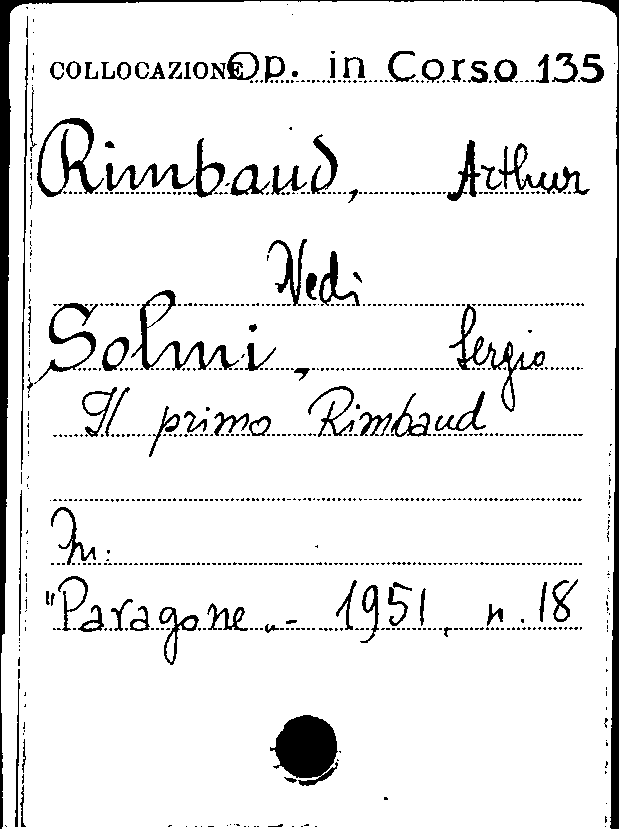 COLLOCAZIONE Op. in Corso 135
Rimbaud, Arthur
Vedi
Solmi, Sergio
Il primo Rimbaud
In:
"Paragone„- 1951, n. 18